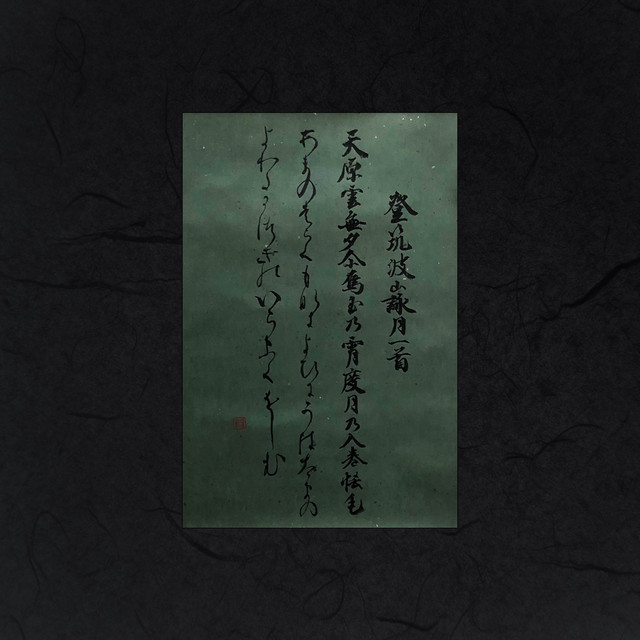 登筑波山詠月一首
天原雲無夕尓烏玉乃霄度月乃入巻恡毛
あまのはらくもなきよひにうはたまの
よわたるつきのいらまくをしも